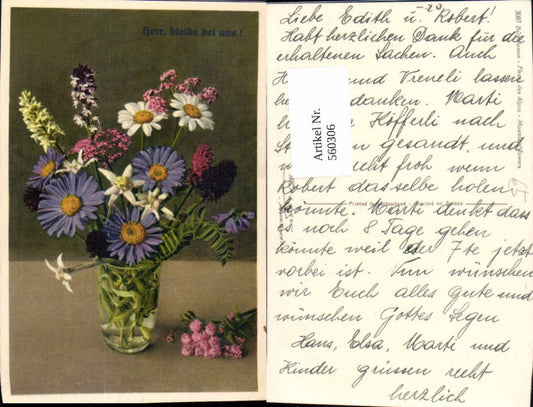 Herr, bleibe bei uns!
Liebe Edith u. Robert!
Habt herzlichen Dank für die
erhaltenen Sachen. Auch
H und Vreneli lassen
danken. Marti
Höfferli nach
St gesandt, und
recht froh wenn
Robert dasselbe holen
könnte. Marti denkt dass
es noch 8 Tage gehen
könnte weil der 7te jetzt
vorbei ist. Nun wünschen
wir Euch alles gute und
wünschen Gottes Segen
Hans, Elsa, Marti und
Kinder grüssen recht
herzlich
Artikel Nr.
560306